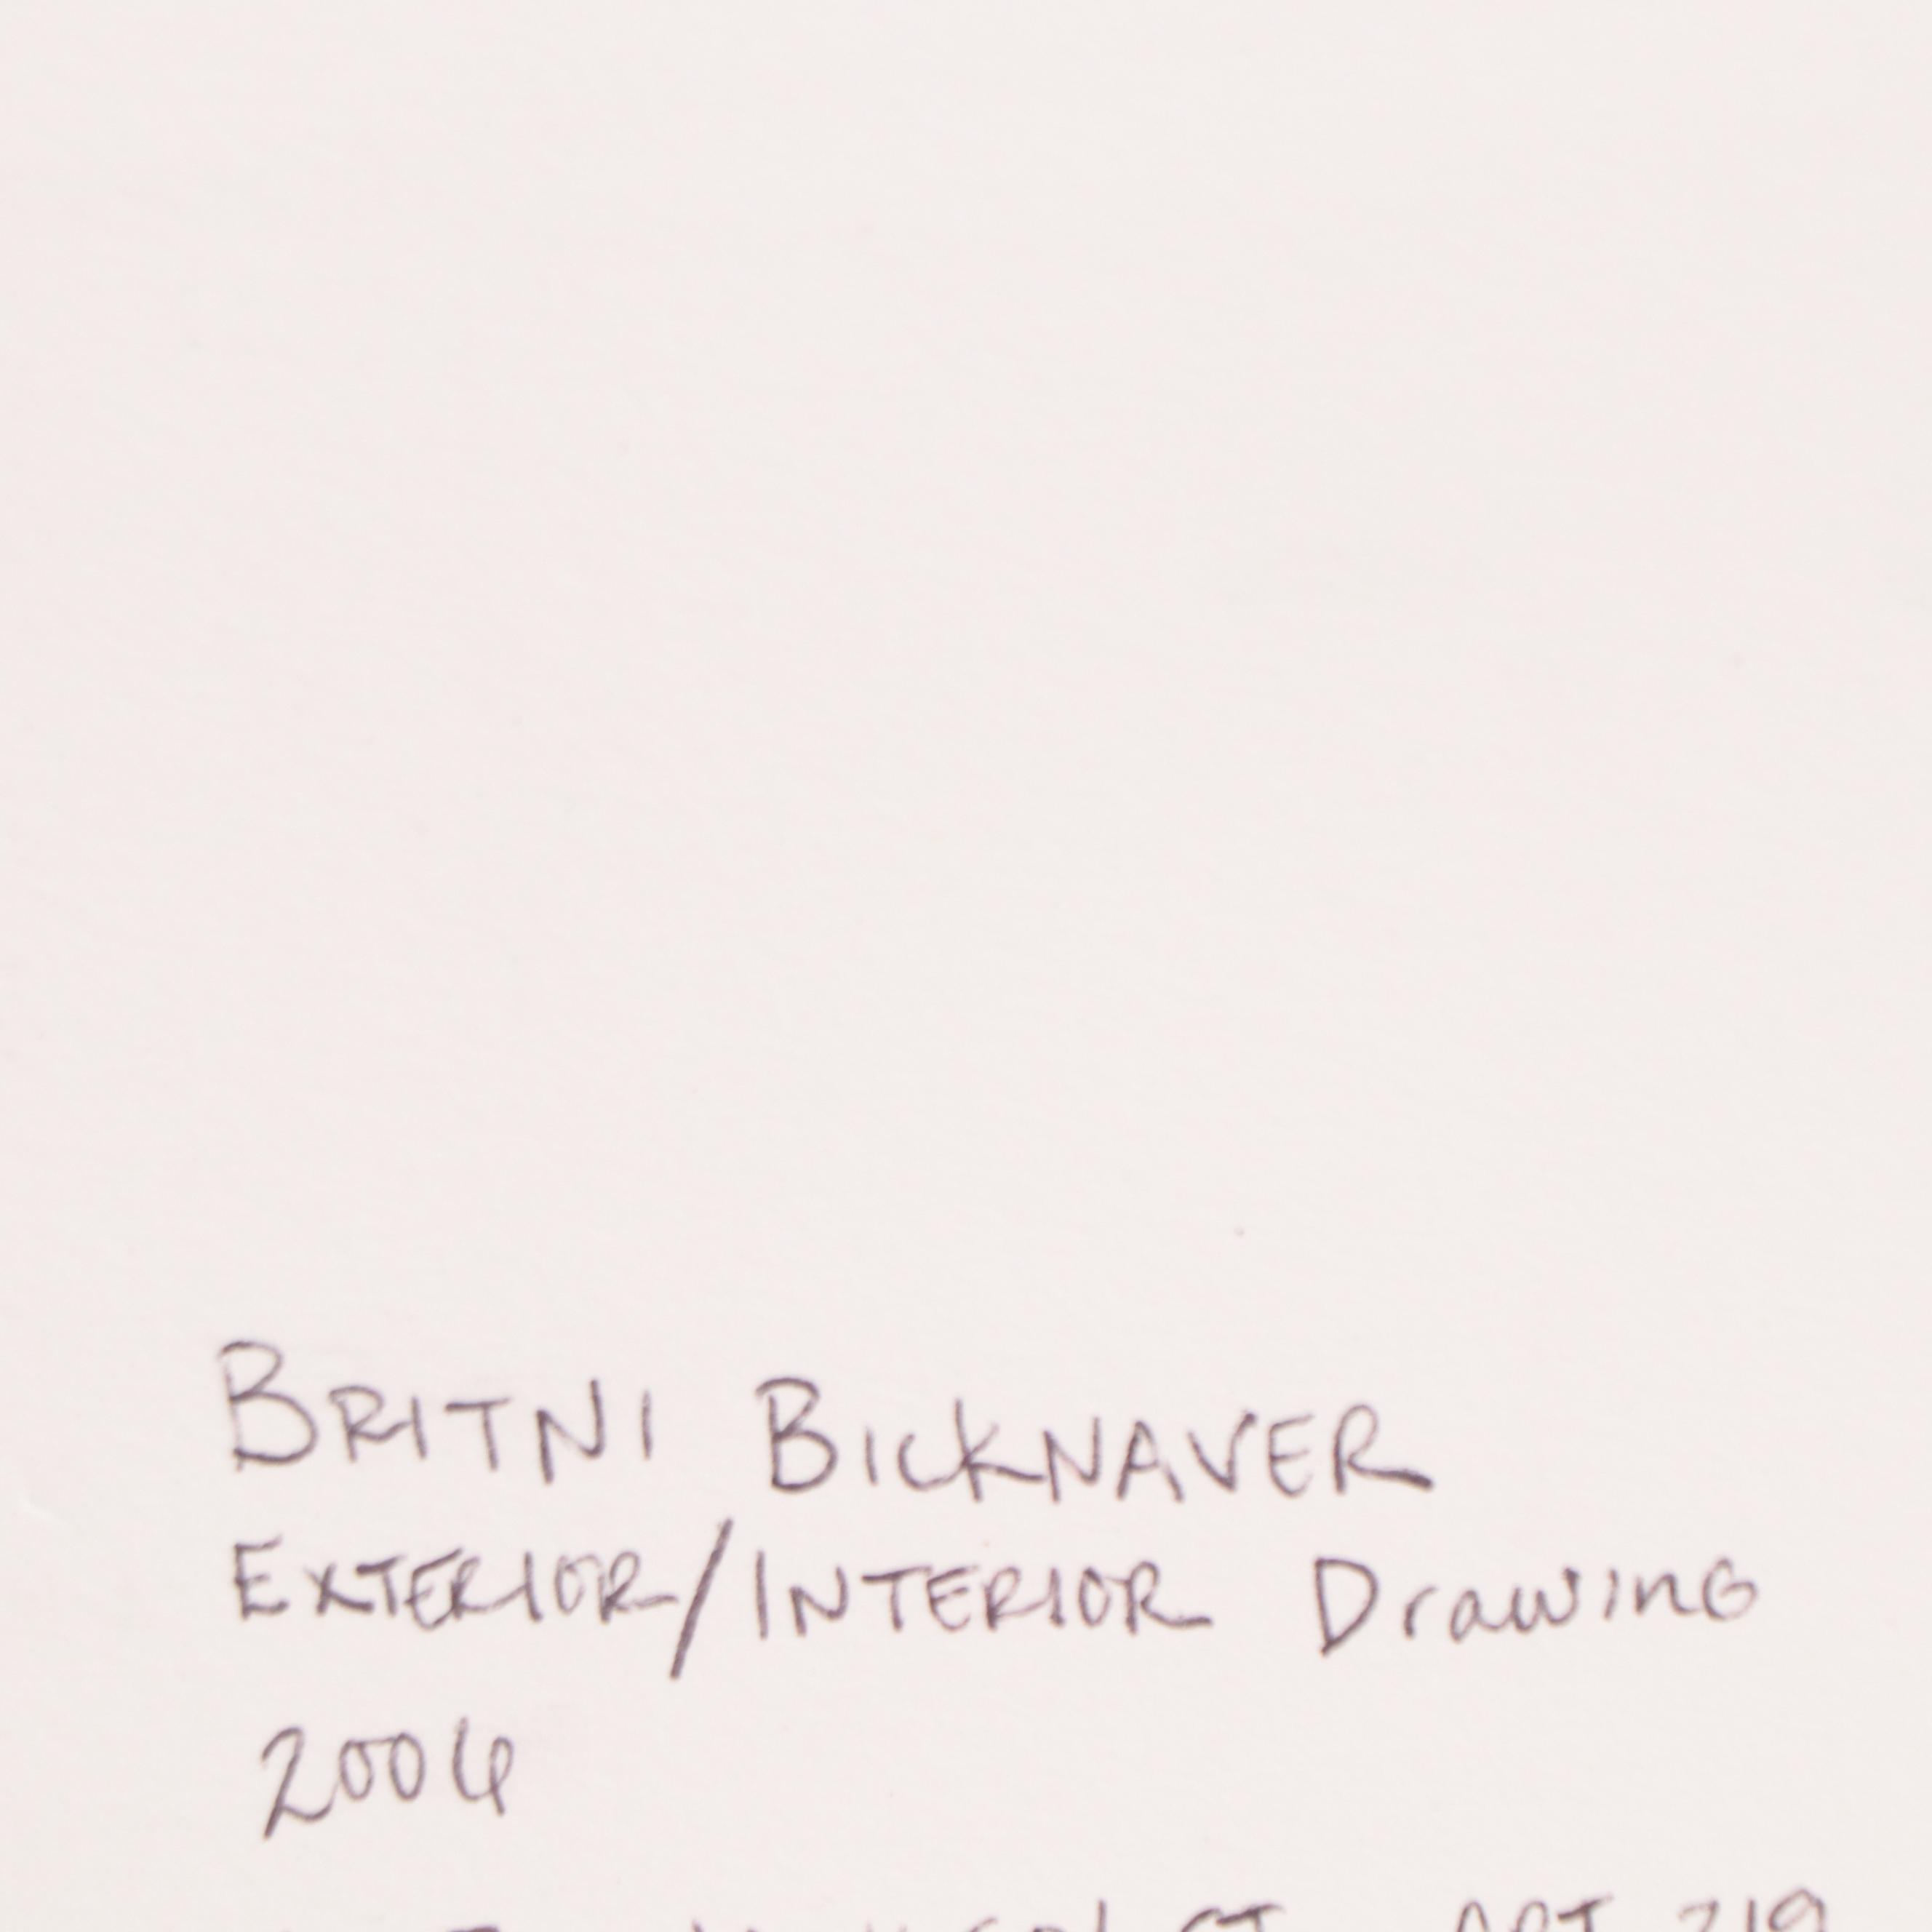 BRITNI BICKNAVER
EXTERIOR/INTERIOR DrawinG
2006
ST. APT. 219